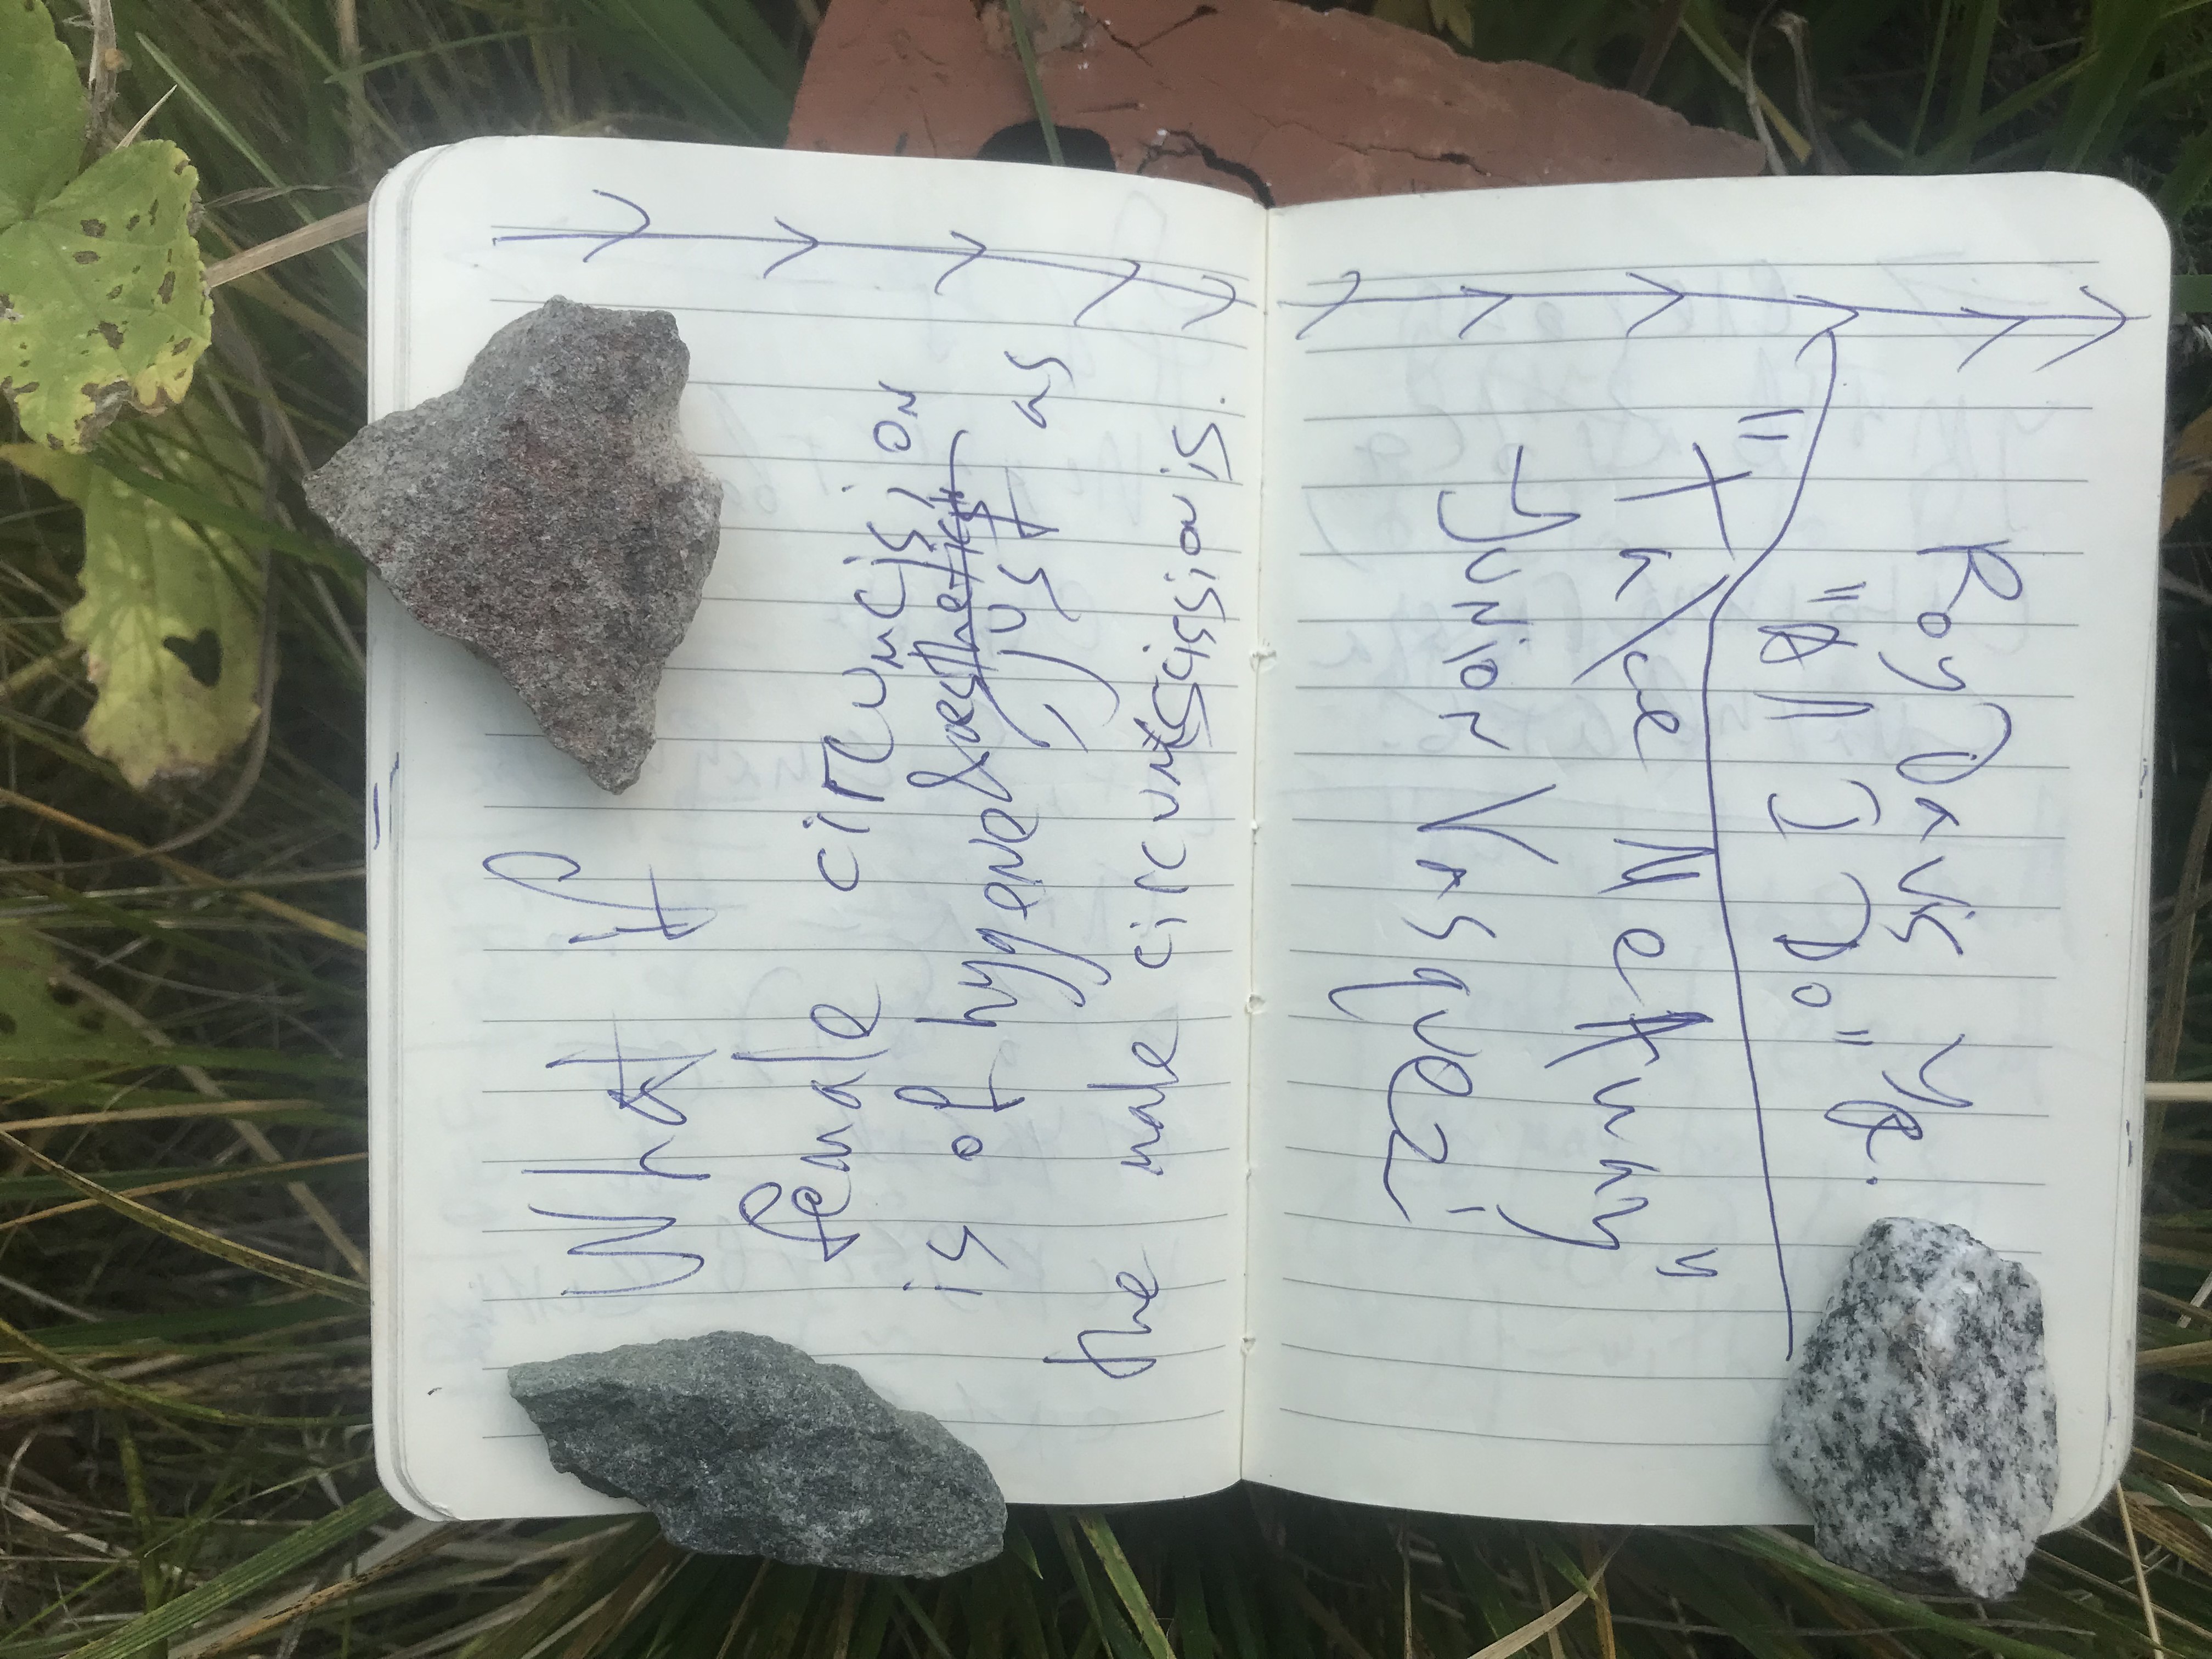 What A
female circumcision
is of hyperaesthetics
(just as
the male circumscission is.
Roy Davis Jr.
"All I Do"
"Take Me
Junior Vasquez